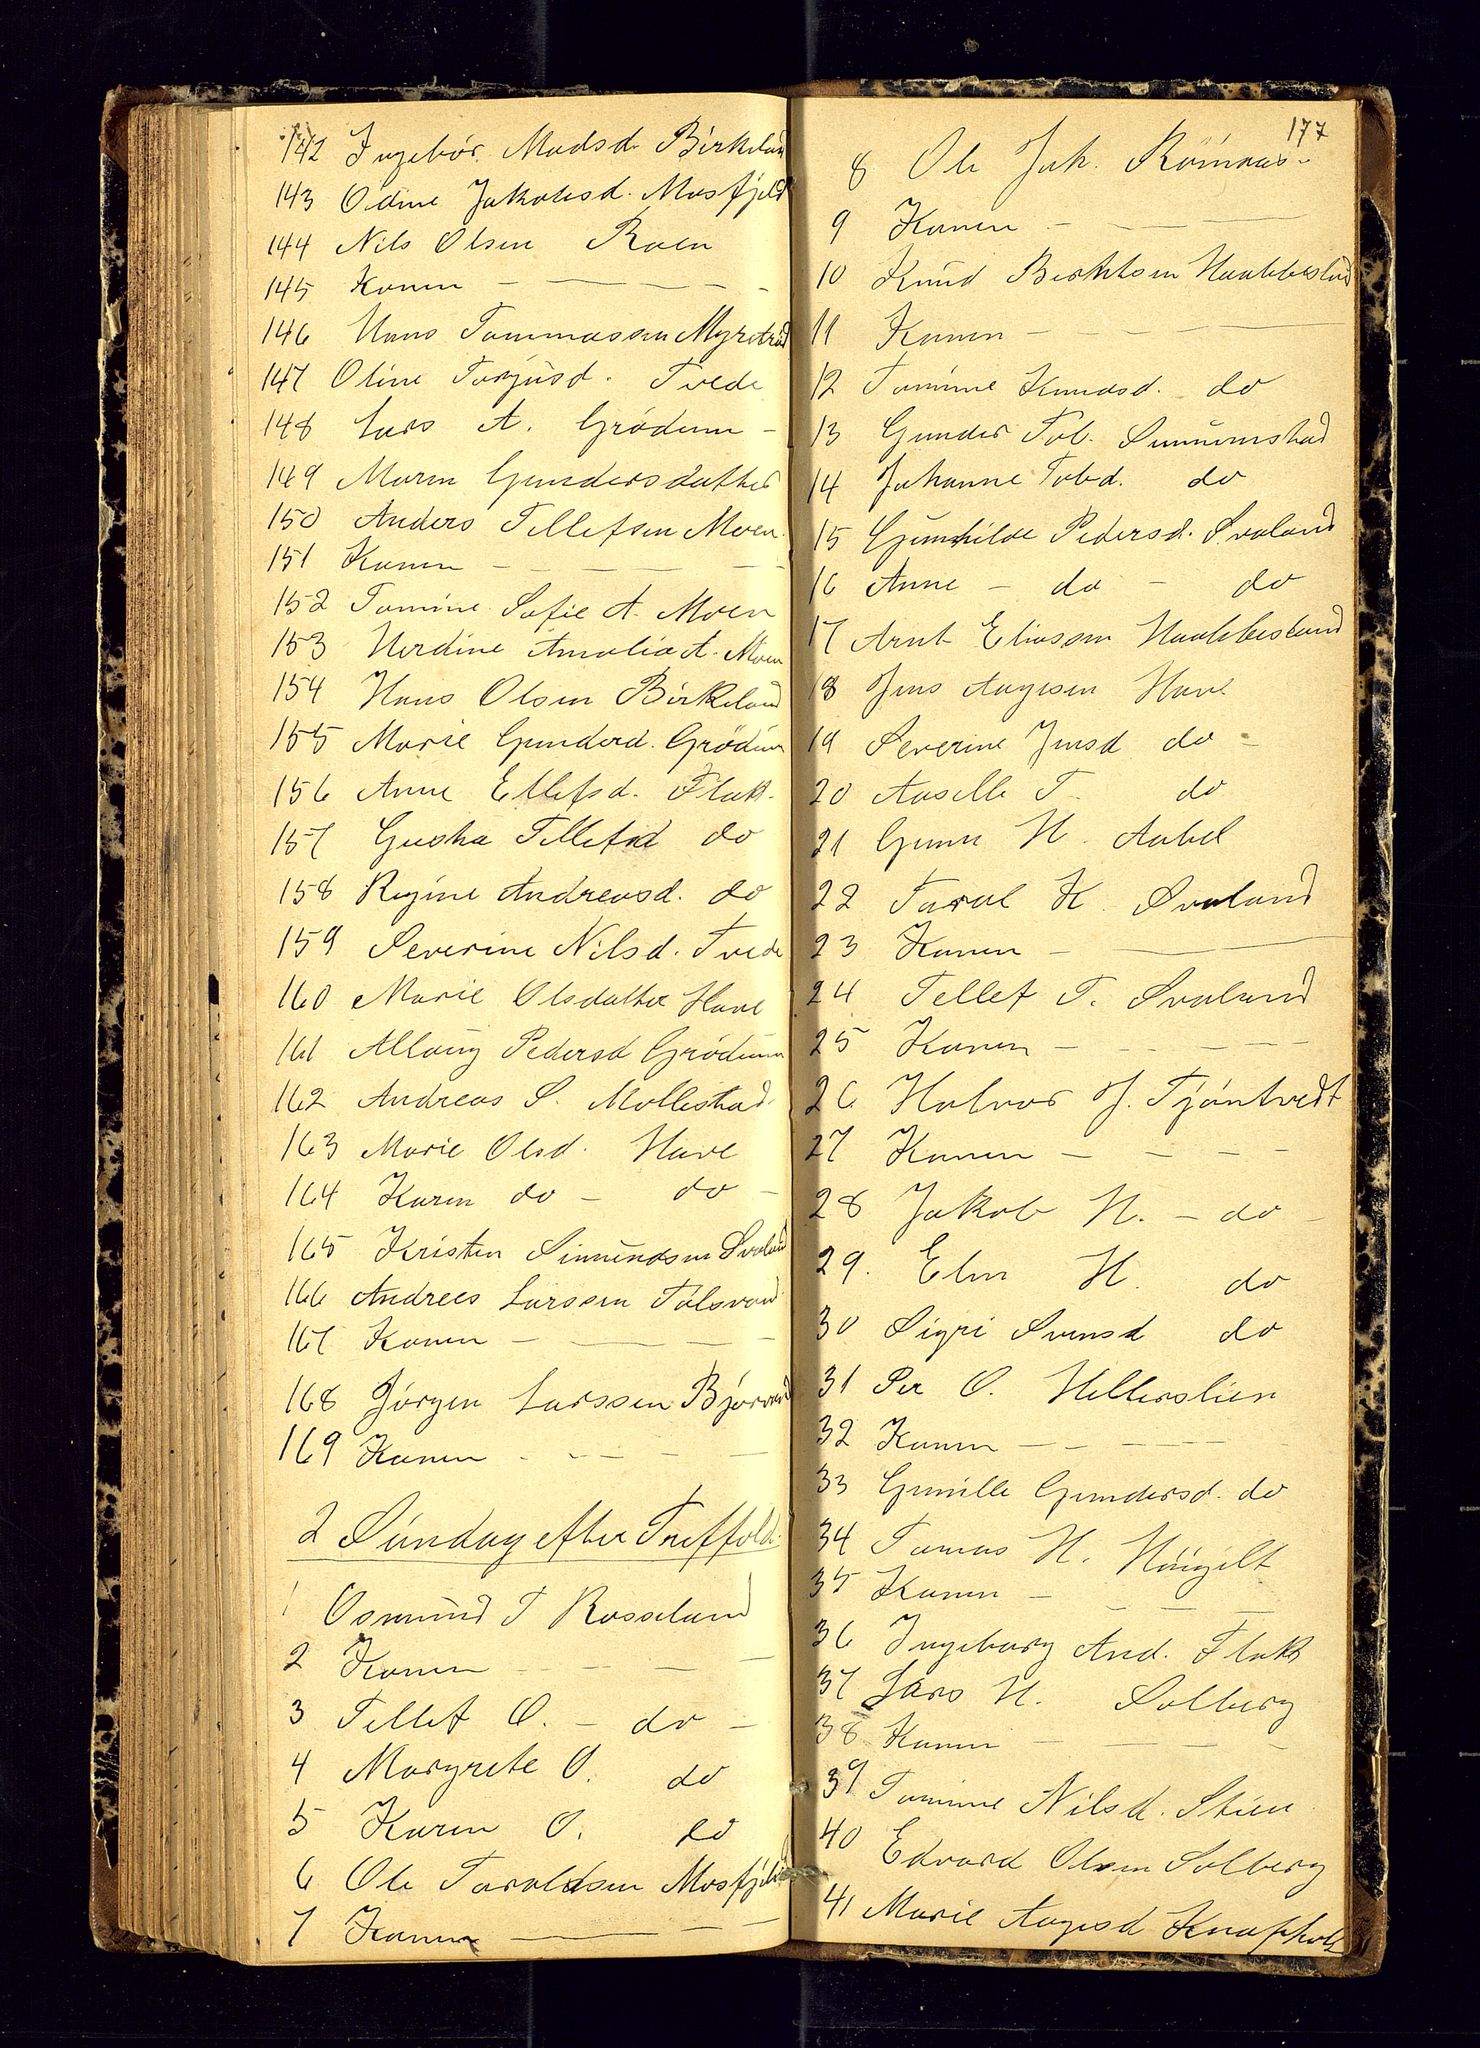 142 Ingebør. Madsd. Birkeland
143 Odine Jakobsd. Mosfjeld
144 Nils Olsen Roen
145 Konen - - - - -
146 Hans Tommassen Myrstad
147 Oline Torjusd. Tvede
148 Lars A. Grødum -
149 Maren Gundersdatter
150 Anders Tellefsen Moen
151 Konen - - - - -
152 Tomine Sofie A. Moen
153 Herdine Amalia A. Moen
154 Hans Olsen Birkeland
155 Marie Gunderd. Grødum
156 Anne Ellefsd. Flak.
157 Gusha Tellefsd do
158 Regine Andreasd. do
159 Severine Nilsd. Tvede
160 Marie Olsdatter Have
161 Allaug Pedersd Grødum
162 Andreas S. Mollestad.
163 Marie Olsd. Have
164 Karen do - do -
165 Kristen Simundsen Svaland
166 Andrees Larssen Tolsvand
167 Konen - - - -
168 Jörgen Larssen Bjorvand
169 Konen - - - -
2 Sundag efter Treffold.
1 Osmund T Rosseland
2 Konen - - - - -
3 Tellef O. - do -
4 Margrete O. do
5 Karen O. do
6 Ole Taraldsen Mosfjeld
7 Konen - - -
177
8 Ole Jak. Römnas -
9 Konen - - -
10 Knud Berhtsen Haabbesland
11 Konen - - -
12 Tomine Knudsd. do
13 Gunder Tob. Simonstad
14 Johanne Tobd. do
15 Gunhilde Pedersd. Svaland
16 Anne - do - do
17 Arnt Eliassen Haabbesland
18 Jens Aagesen Have
19 Severine Jensd do -
20 Aaselle T. do
21 Gunn H. Aabel
22 Taral K. Svaland
23 Konen - -
24 Tellef T. Svaland
25 Konen - - - - -
26 Halvor J. Tjöntvedt
27 Konen - - - -
28 Jakob H. - do -
29. Elen H. do
30 Sigri Svensd do
31 Per O. Hellerslien
32 Konen - - - -
33 Gunille Gundersd. do
34 Tomas H. Haugilt
35 Konen - - - -
36 Ingeborg And. Flak
37 Lars H. Solberg
38 Konen - - - -
39 Tomine Nilsd. Stien
40 Edvard Olsen Solberg
41 Marie Aagesd Knapholt